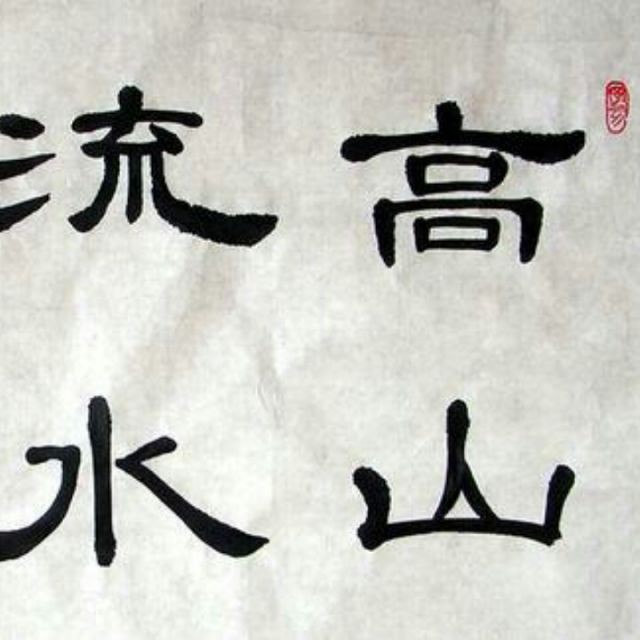 高山
流水